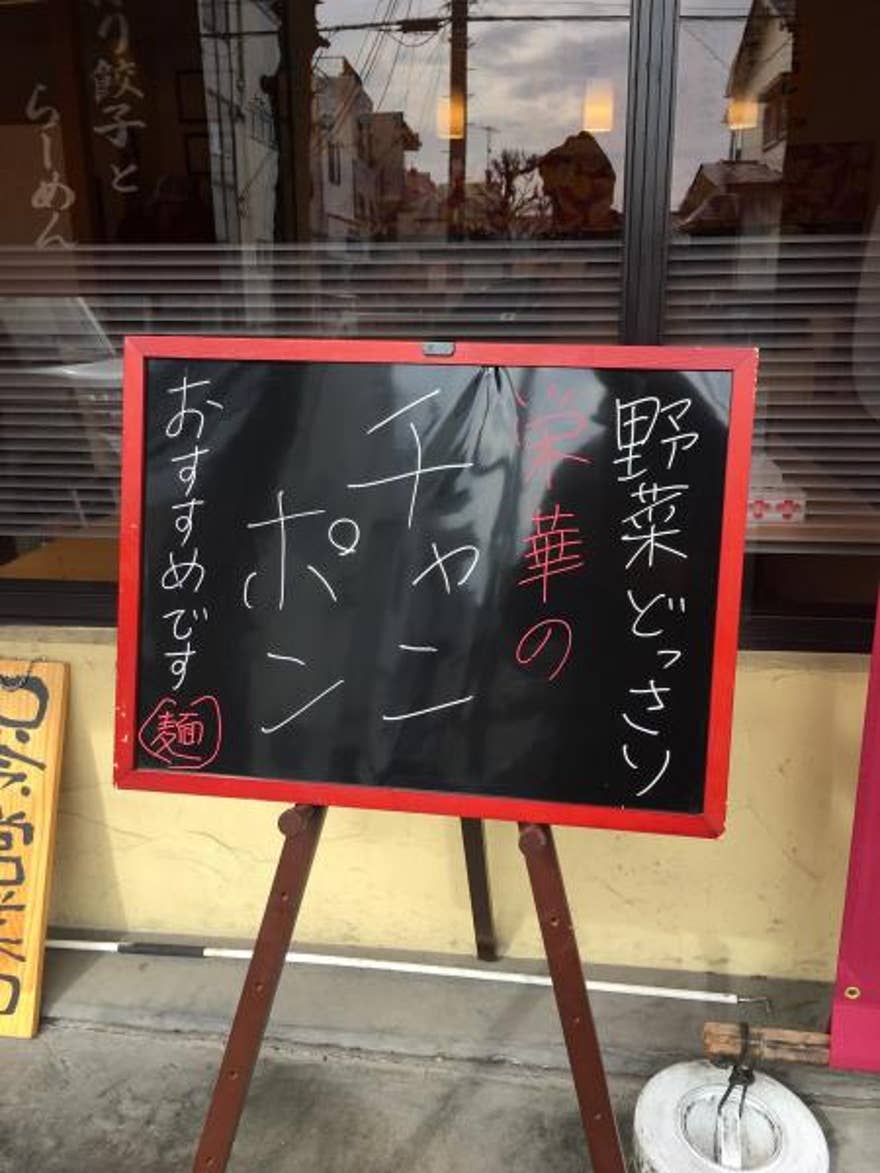 野菜どっさり
栄華の
チャン
ポン
おすすめです
麺
り餃子と
らーめん